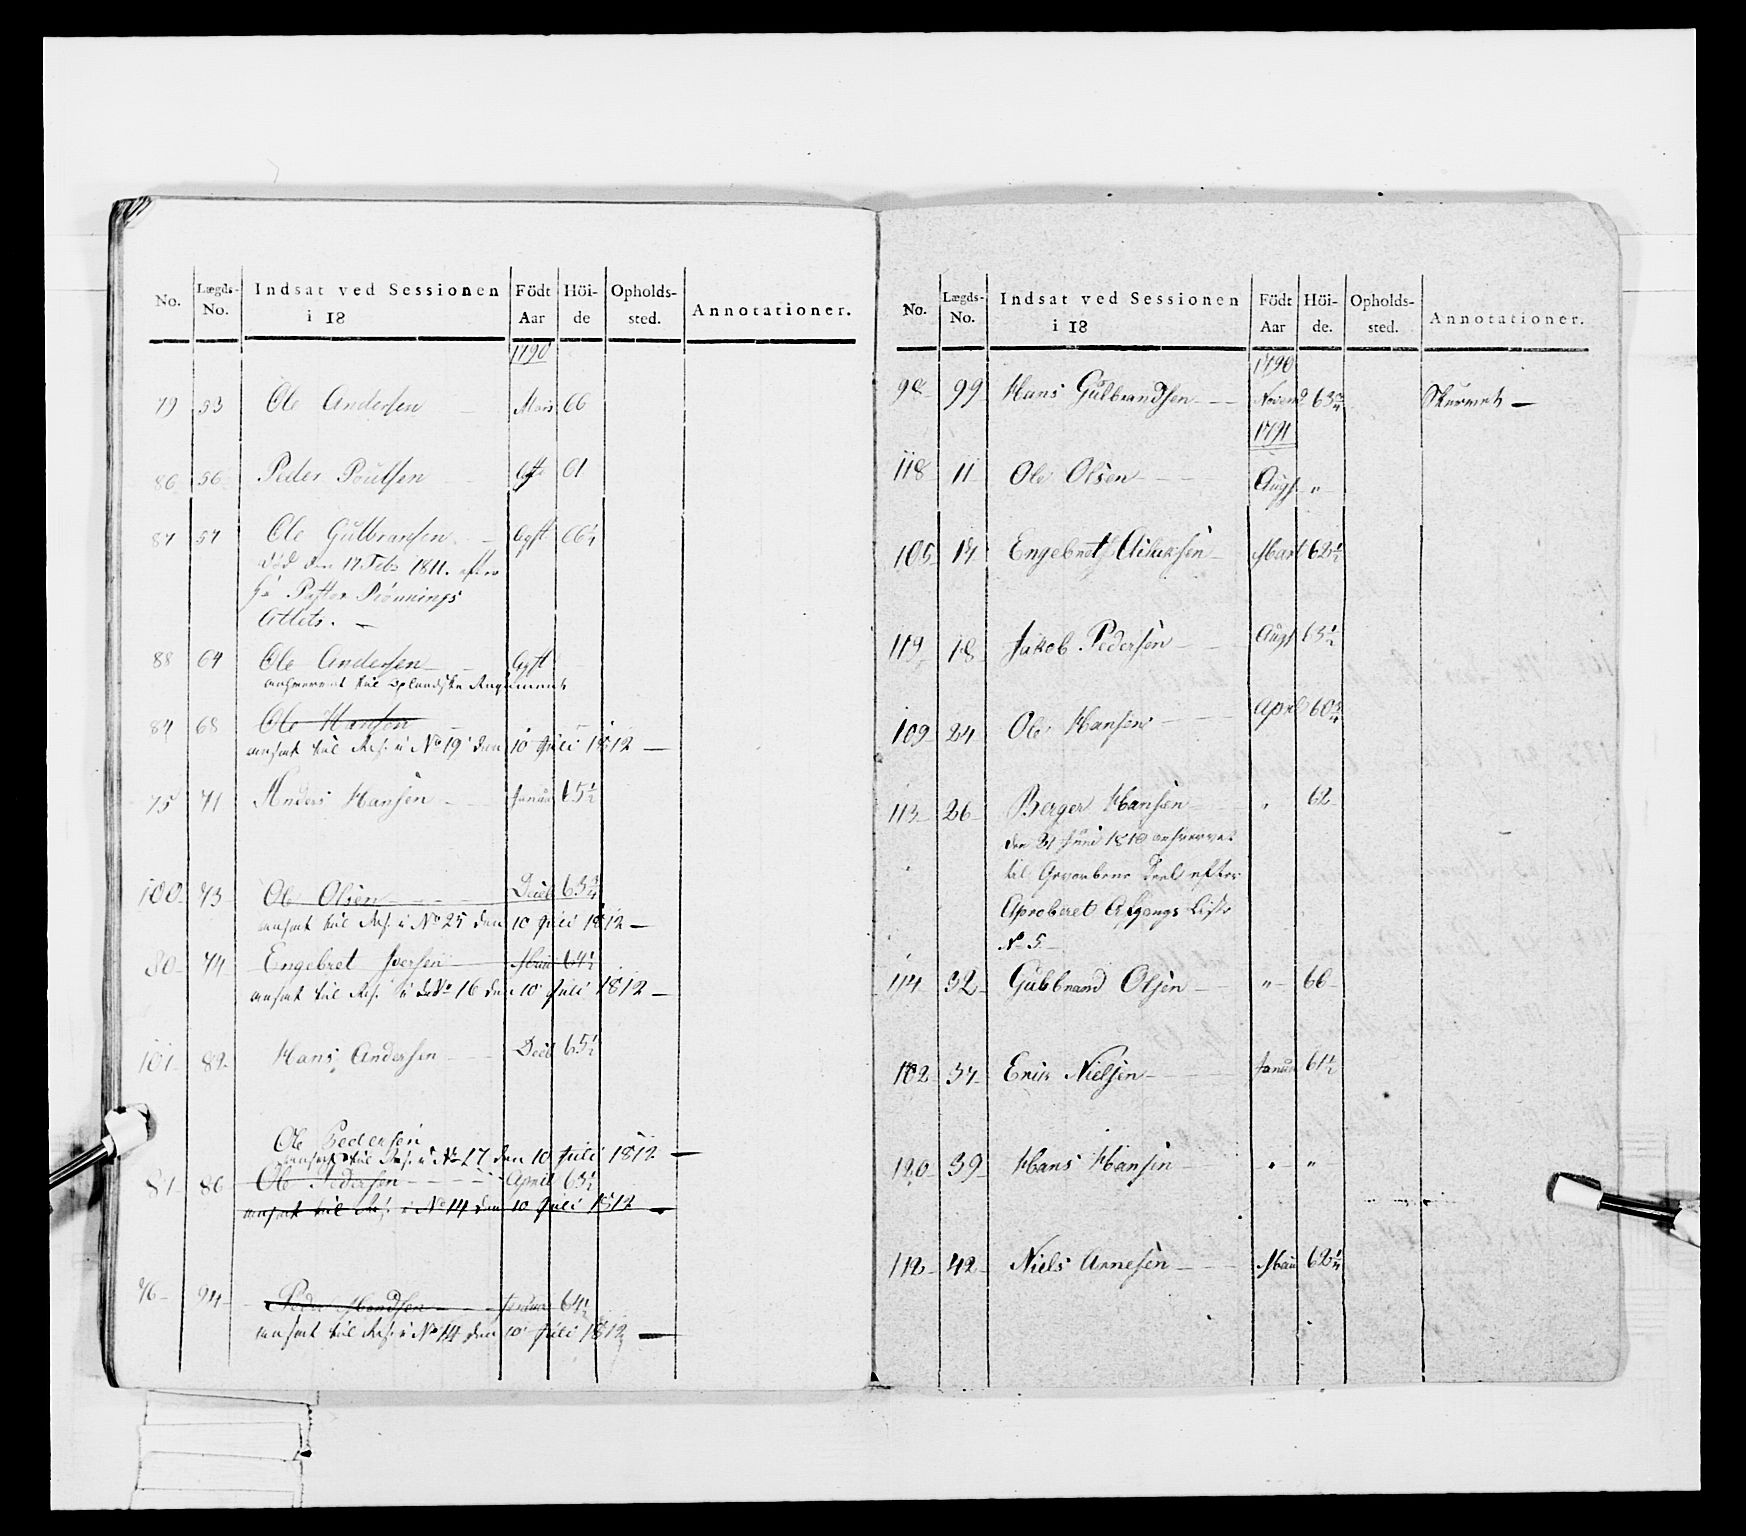 No. Lægds-No. Indsat ved Sessionen i 18 Födt Aar Höi-de Opholds-sted. Annotationer.
1790
79 53 Ole Andersen Mais 66
86 56 Peder Poulsen 61
87 57 Ole Gulbransen 66 1/4
Död den 17 Feb 1811. efter
Pastor Rönnings
Attest. —
88 64 Ole Andersen
til Oplandske Regiment
84 68 Ole Hansen
ansat til Res: u No 19 den 10 Juli 1812 —
75 71 Anders Hansen Janua 65 1/2
100 73 Ole Olsen Decb 63 3/4
ansat til Res: u No 25 den 10 Juli 1812 —
80 74 Engebret Iversen 64 1/2
ansat til Res: u No 16 den 10 Juli 1812 —
101 82 Hans Andersen Decb 65 1/2
Ole Pedersen
ansat til Res. u No 17 den 10 Juli 1812 —
81 86 Ole Pedersen April 63 1/2
ansat til Res: u No 14 den 10 Juli 1812 —
76 94 Peder Janua 64 1/2
ansat til Res: u No 14 den 10 Juli 1812 —
No. Lægds-No. Indsat ved Sessionen i 18 Födt Aar Höi-de. Opholds-sted. Annotationer.
1790
98 99 Hans Gulbrandsen Novemb 63 3/4
1791
118 11 Ole Olsen Augs "
105 14 Engebret Mart 62 1/2
119 18 Jakob Pedersen Augs 63 1/2
109 24 Ole Hansen April 60 3/4
113 26 Berger Hansen " 62
den 21 Juni 1810
til Gevorbene efter
Aproberet Afgangs Liste
No 5
114 32 Gulbrand Olsen " 66
102 37 Erik Nielsen Janua 61 1/2
120 39 Hans Hansen " "
112 42 Niels Arnesen 62 1/4